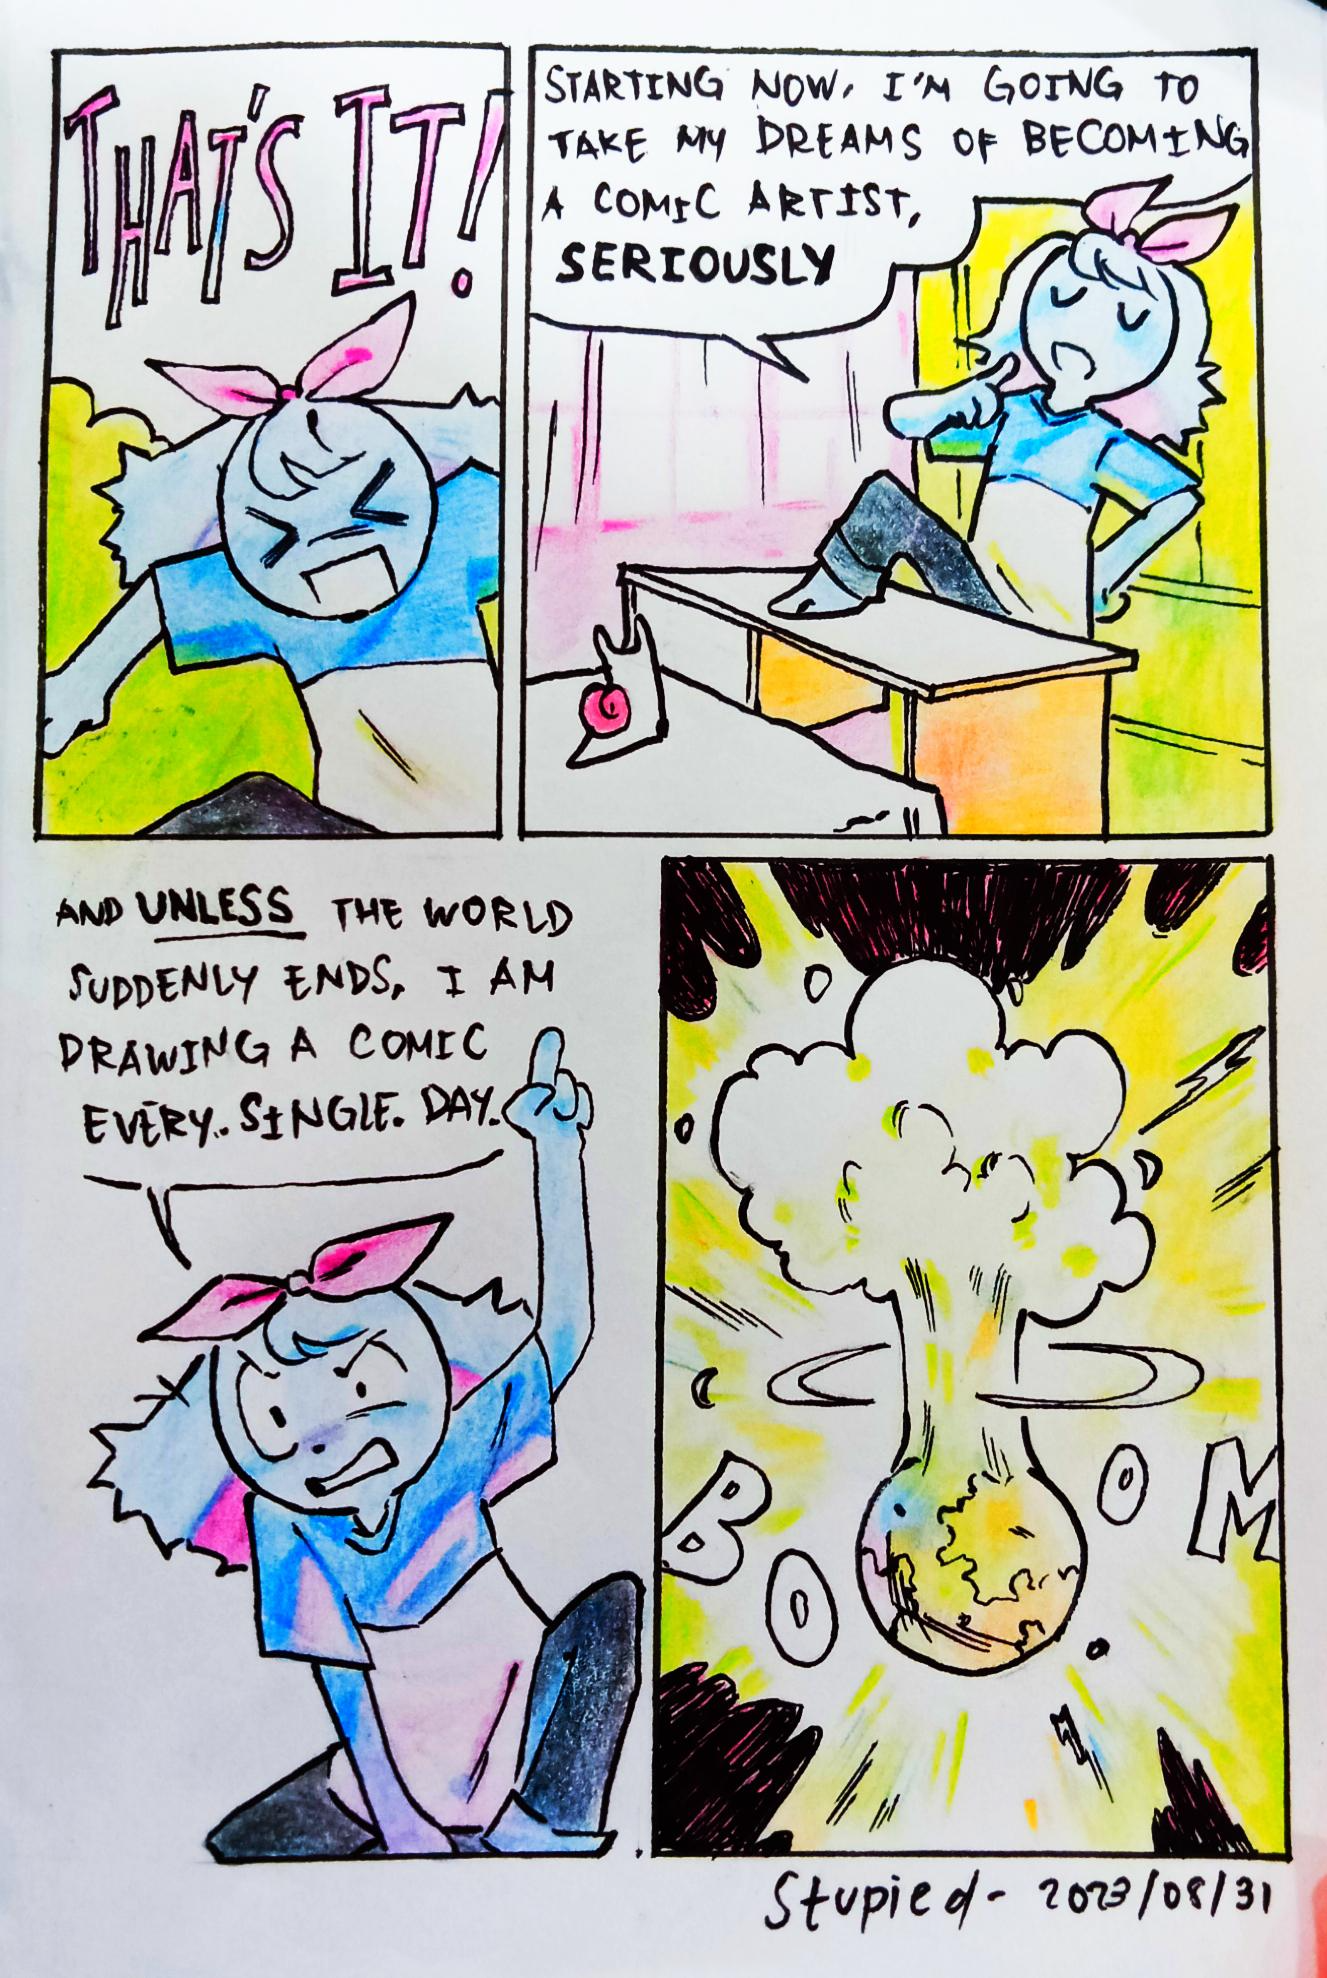 THAT'S IT!
STARTING NOW, I'M GOING TO
TAKE MY DREAMS OF BECOMING
A COMIC ARTIST,
SERIOUSLY
AND UNLESS THE WORLD
SUDDENLY ENDS, I AM
DRAWING A COMIC
EVERY. SINGLE. DAY.
BOOM
Stupied - 2023/08/31